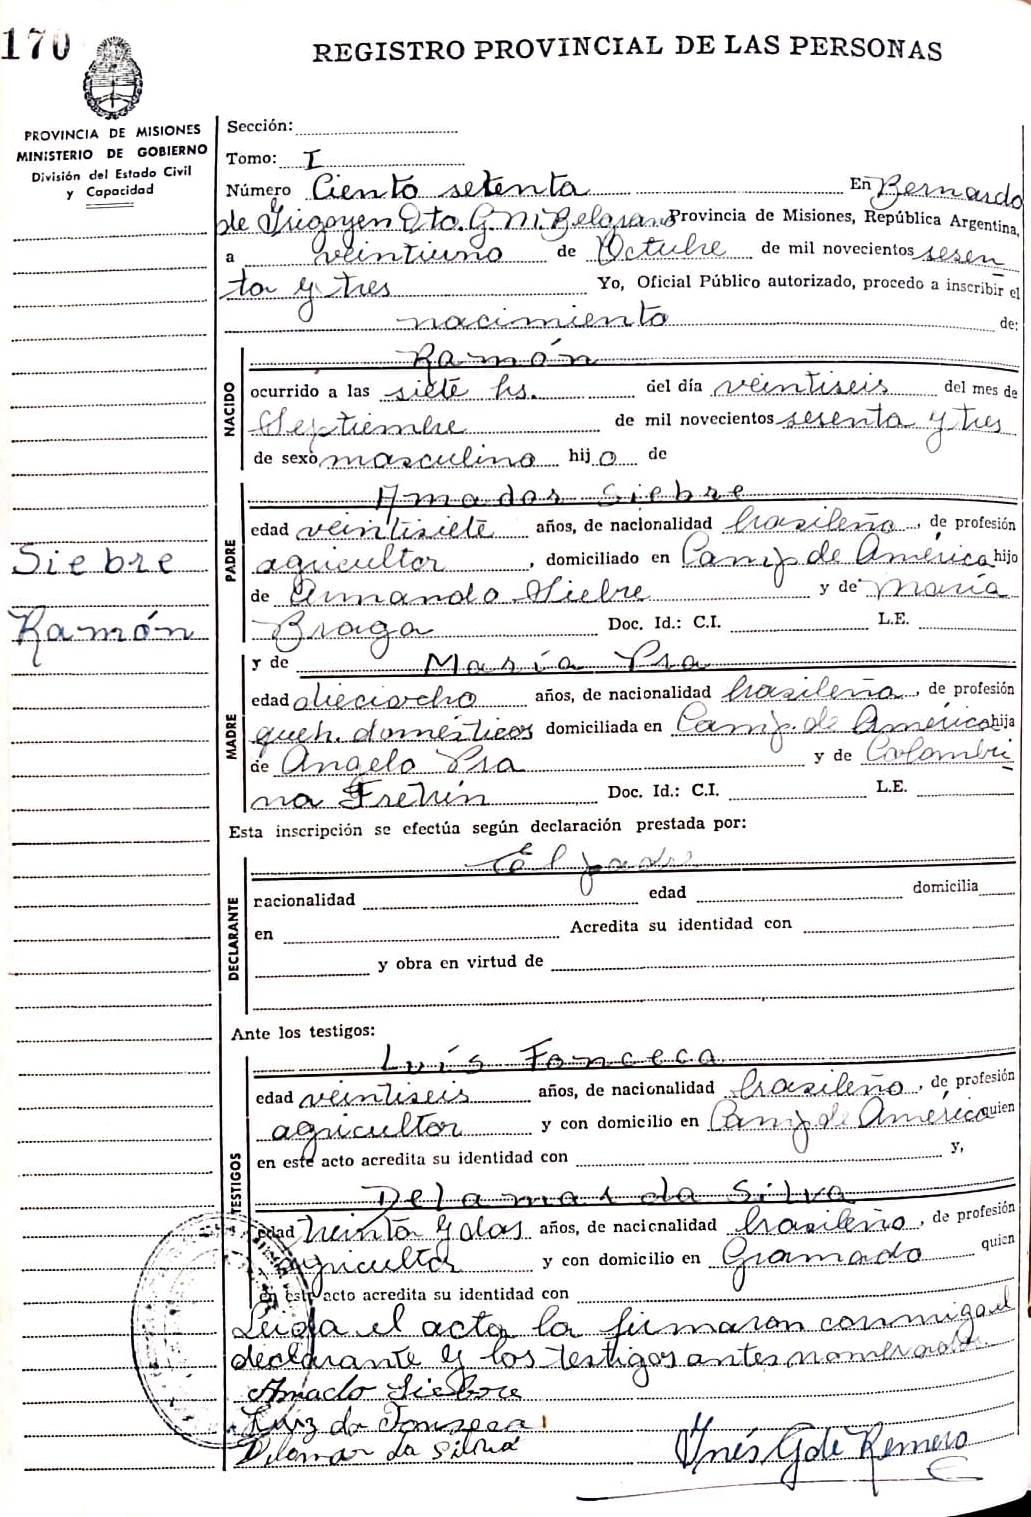 170
REGISTRO PROVINCIAL DE LAS PERSONAS
PROVINCIA DE MISIONES
MINISTERIO DE GOBIERNO
División del Estado Civil
y Capacidad
Siebre
Ramón
Sección:
Tomo: I
Número Ciento setenta En Bernardo
de Yrigoyen Dto. G. M. Belgrano Provincia de Misiones, República Argentina,
a veintiuno de Octubre de mil novecientos sesen
ta y tres Yo, Oficial Público autorizado, procedo a inscribir el
nacimiento de:
NACIDO
Ramón
ocurrido a las siete hs. del día veintiseis del mes de
Septiembre de mil novecientos sesenta y tres
de sexo masculino hijo de
PADRE
Amador Siebre
edad veintisiete años, de nacionalidad brasileña, de profesión
agricultor, domiciliado en Camp. de América hijo
de Armando Siebre y de María
Braga Doc. Id.: C.I. L.E.
MADRE
y de María Pra
edad dieciocho años, de nacionalidad brasileña, de profesión
queh. domésticos domiciliada en Camp. de América hija
de Angelo Pra y de Colombi
na Doc. Id.: C.I. L.E.
Esta inscripción se efectúa según declaración prestada por:
DECLARANTE
El padre
racionalidad edad domicilia
en Acredita su identidad con
y obra en virtud de
Ante los testigos:
TESTIGOS
Luís Fonceca
edad veintiseis años, de nacionalidad brasileño, de profesión
agricultor y con domicilio en Camp. de América quien
en este acto acredita su identidad con y,
Delamar da Silva
edad treinta y dos años, de nacionalidad brasileño, de profesión
agricultor y con domicilio en Gramado quien
en este acto acredita su identidad con
Leída el acta la firmaron conmigo el
declarante y los testigos antes nombrados
Amado Siebre
Luiz da Fonseca
Delamar da Silva
Inés G de Romero